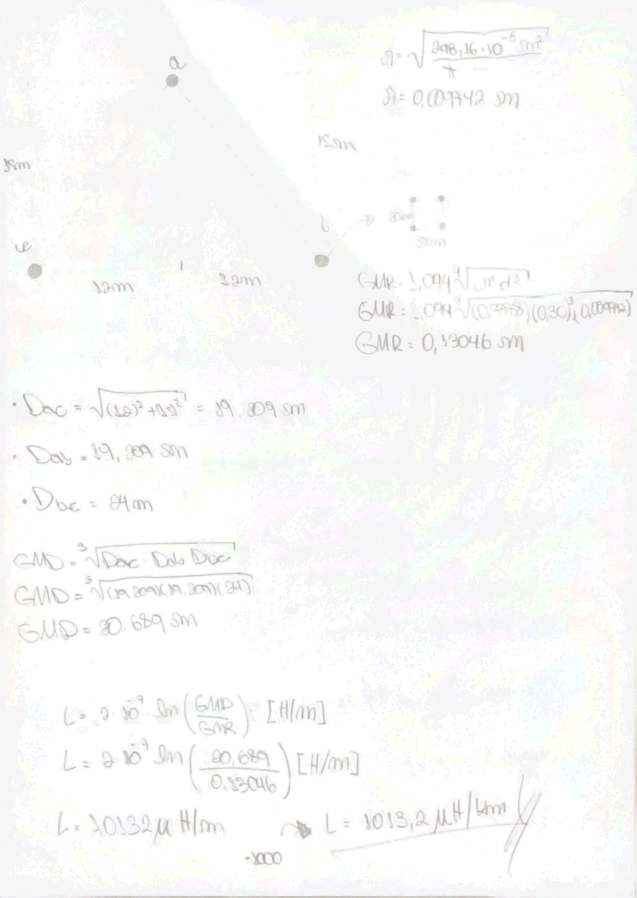 a
r = √(298,16 · 10⁻⁶ m² / π)
r = 0,009742 m
15m
15m
b
30cm
30cm
c
12m
12m
GMR = 1,094 ⁴√(r' d³)
GMR = 1,094 ⁴√((0,7788)(0,30)³(0,009742))
GMR = 0,13046 m
• Dac = √((12)²+15²) = 19.209 m
• Dab = 19,209 m
• Dbc = 24m
GMD = ³√(Dac · Dab Dbc)
GMD = ³√((19,209)(19,209)(24))
GMD = 20.689 m
L = 2 10⁻⁷ ln(GMD/GMR) [H/m]
L = 2 10⁻⁷ ln(20,689/0,13046) [H/m]
L = 1,0132 μ H/m L = 1013,2 μH/km
·1000